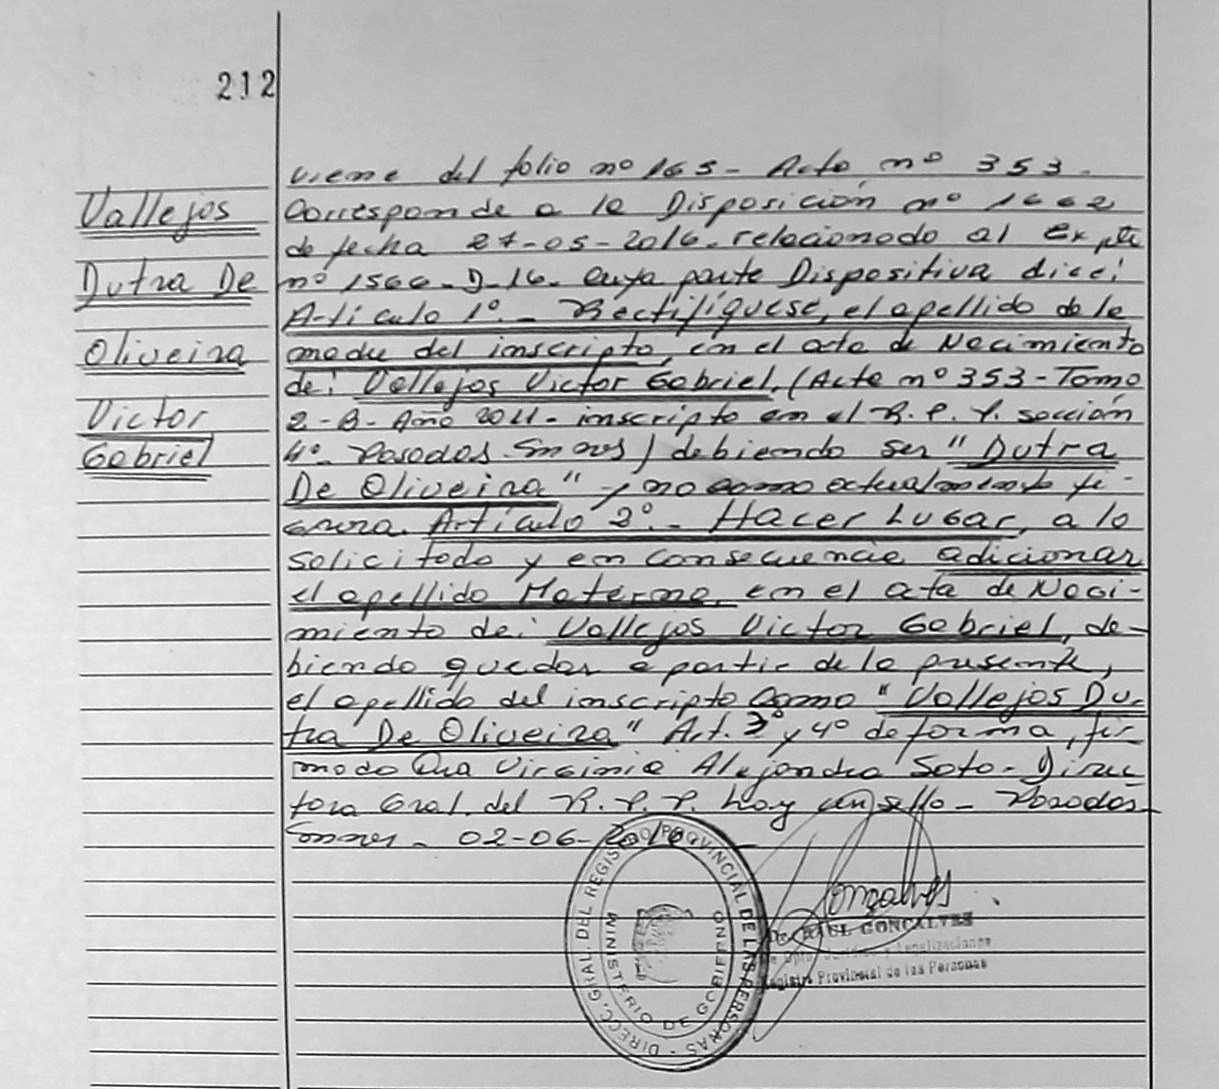 212
Vallejos
Dutra De
Oliveira
Victor
Gabriel
viene del folio nº 165 - Acta nº 353 -
Corresponde a la Disposición nº 1662
de fecha 27-05-2016. relacionado al Expte
nº 1566-D-16. cuya parte Dispositiva dice:
Artículo 1º.- Rectifíquese, el apellido de la
madre del inscripto, en el acta de Nacimiento
de: Vallejos Victor Gabriel, (Acta nº 353 - Tomo
2-B- Año 2011- inscripto en el R. P. P. sección
4º- Posadas Smnes) debiendo ser "Dutra
De Oliveira" y no como actualmente fi-
gura. Artículo 2º.- Hacer Lugar, a lo
solicitado y en consecuencia adicionar
el apellido Materno, en el acta de Naci-
miento de: Vallejos Victor Gabriel, de-
biendo quedar a partir de la presente,
el apellido del inscripto como "Vallejos Du-
tra De Oliveira" Art. 3º y 4º de forma, fir
mado Dra Virginia Alejandra Soto - Direc
tora Gral. del R. P. P. hay un sello - Posadas-
Smnes - 02-06-2016.-
DIRECC. GRAL. DEL REGISTRO PROVINCIAL DE LAS PERSONAS -
MINISTERIO DE GOBIERNO
Gonçalves
Dr. RAUL GONCALVES
Dpto. Jurídico y Legalizaciones
Registro Provincial de las Personas